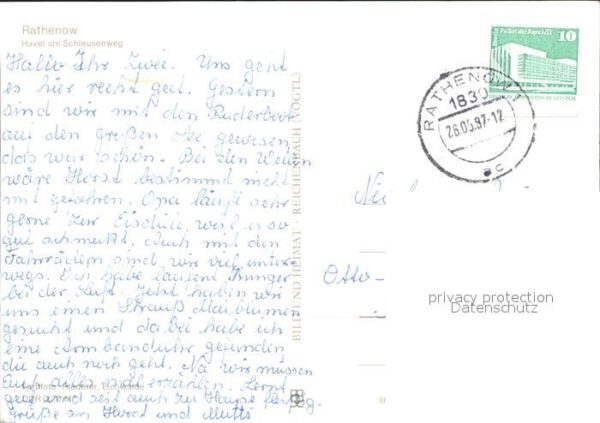 Rathenow
Havel am Schleusenweg
Hallo Ihr Zwei. Uns geht
es hier recht gut. Gestern
sind wir mit den Ruderboot
auf den großen See gewesen,
das war schön. Bei den Wellen
wäre Horst bestimmt nicht
mit gefahren. Opa läuft sehr
gerne zur Eisdiele, weil es so
gut schmeckt. Auch mit den
Fahrrädern sind wir viel unter-
wegs. Ich habe laufend Hunger
bei der Luft. Jetzt haben wir
uns einen Strauß Maiblumen
gesucht und dabei habe ich
eine Armbanduhr gefunden,
die auch noch geht. Na wir müssen
Euch alles mal erzählen. Lernt
gut und seid auch zur Hause fleißig.
grüße an Horst und Mutti
BILD UND HEIMAT · REICHENBACH (VOGTL)
Palast der Republik
10
RATHENOW 1
1830
26.05.87-12
ac
Otto-
privacy protection
Datenschutz